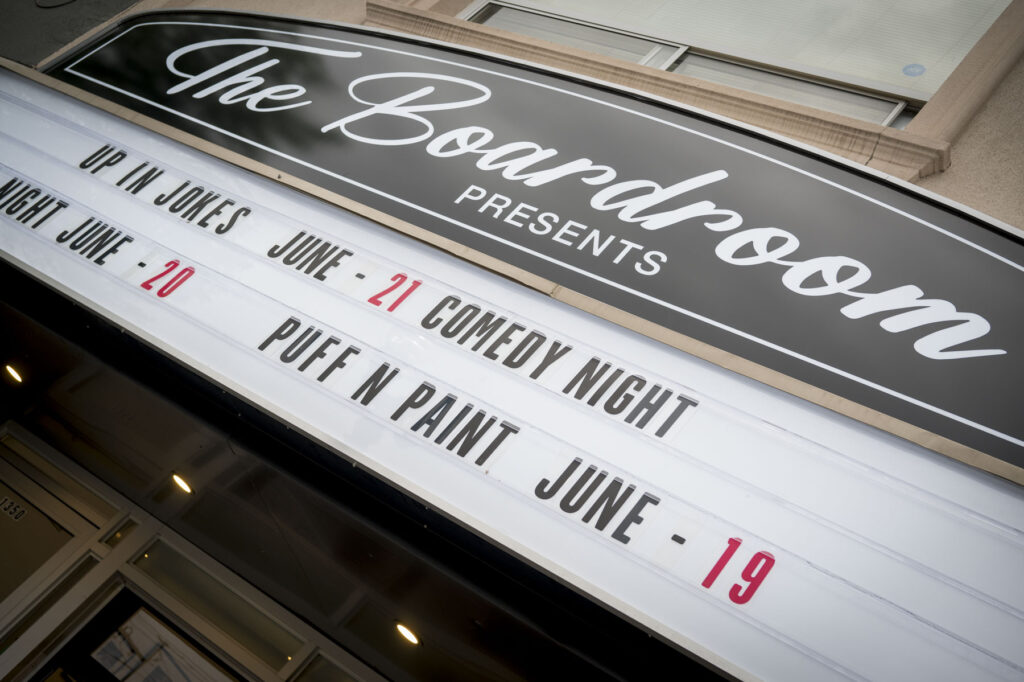 The Boardroom
PRESENTS
UP IN JOKES JUNE - 21 COMEDY NIGHT
NIGHT JUNE - 20 PUFF N PAINT JUNE - 19
1350